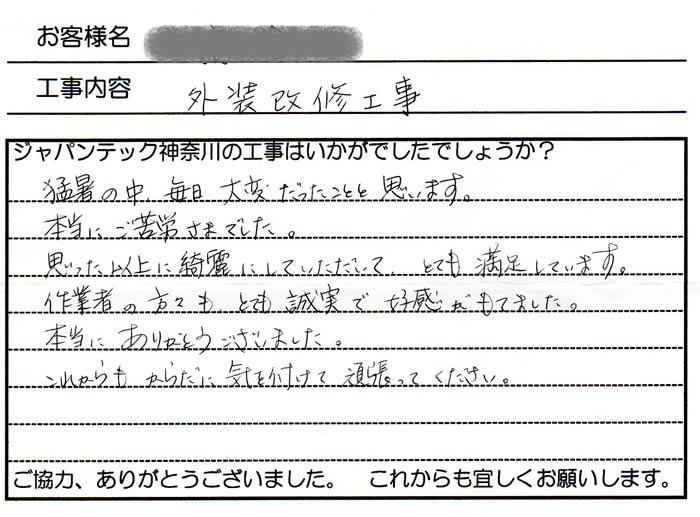 お客様名
工事内容 外装改修工事
ジャパンテック神奈川の工事はいかがでしたでしょうか？
猛暑の中、毎日大変だったことと思います。
本当にご苦労さまでした。
思った以上に綺麗にしていただいて、とても満足しています。
作業者の方々も、とても誠実で好感がもてました。
本当にありがとうございました。
これからもからだに気を付けて頑張ってください。
ご協力、ありがとうございました。 これからも宜しくお願いします。